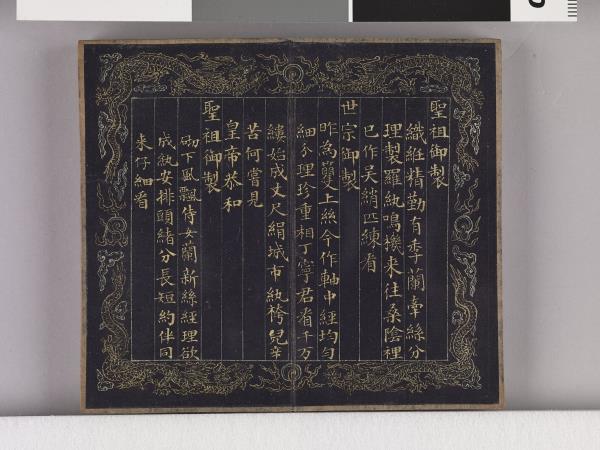 聖祖御製
織紝精勤有季蘭牽絲分
理製羅紈鳴機來往桑陰裡
已作吳綃匹練看
世宗御製
昨為箔上絲今作軸中經均勻
細分理珍重相丁寧君看千万
縷始成丈尺絹城市紈袴兒辛
苦何嘗見
皇帝恭和
聖祖御製
砌下風飄侍女蘭新絲經理欲
成紈安排頭緒分長短約伴同
來仔細看